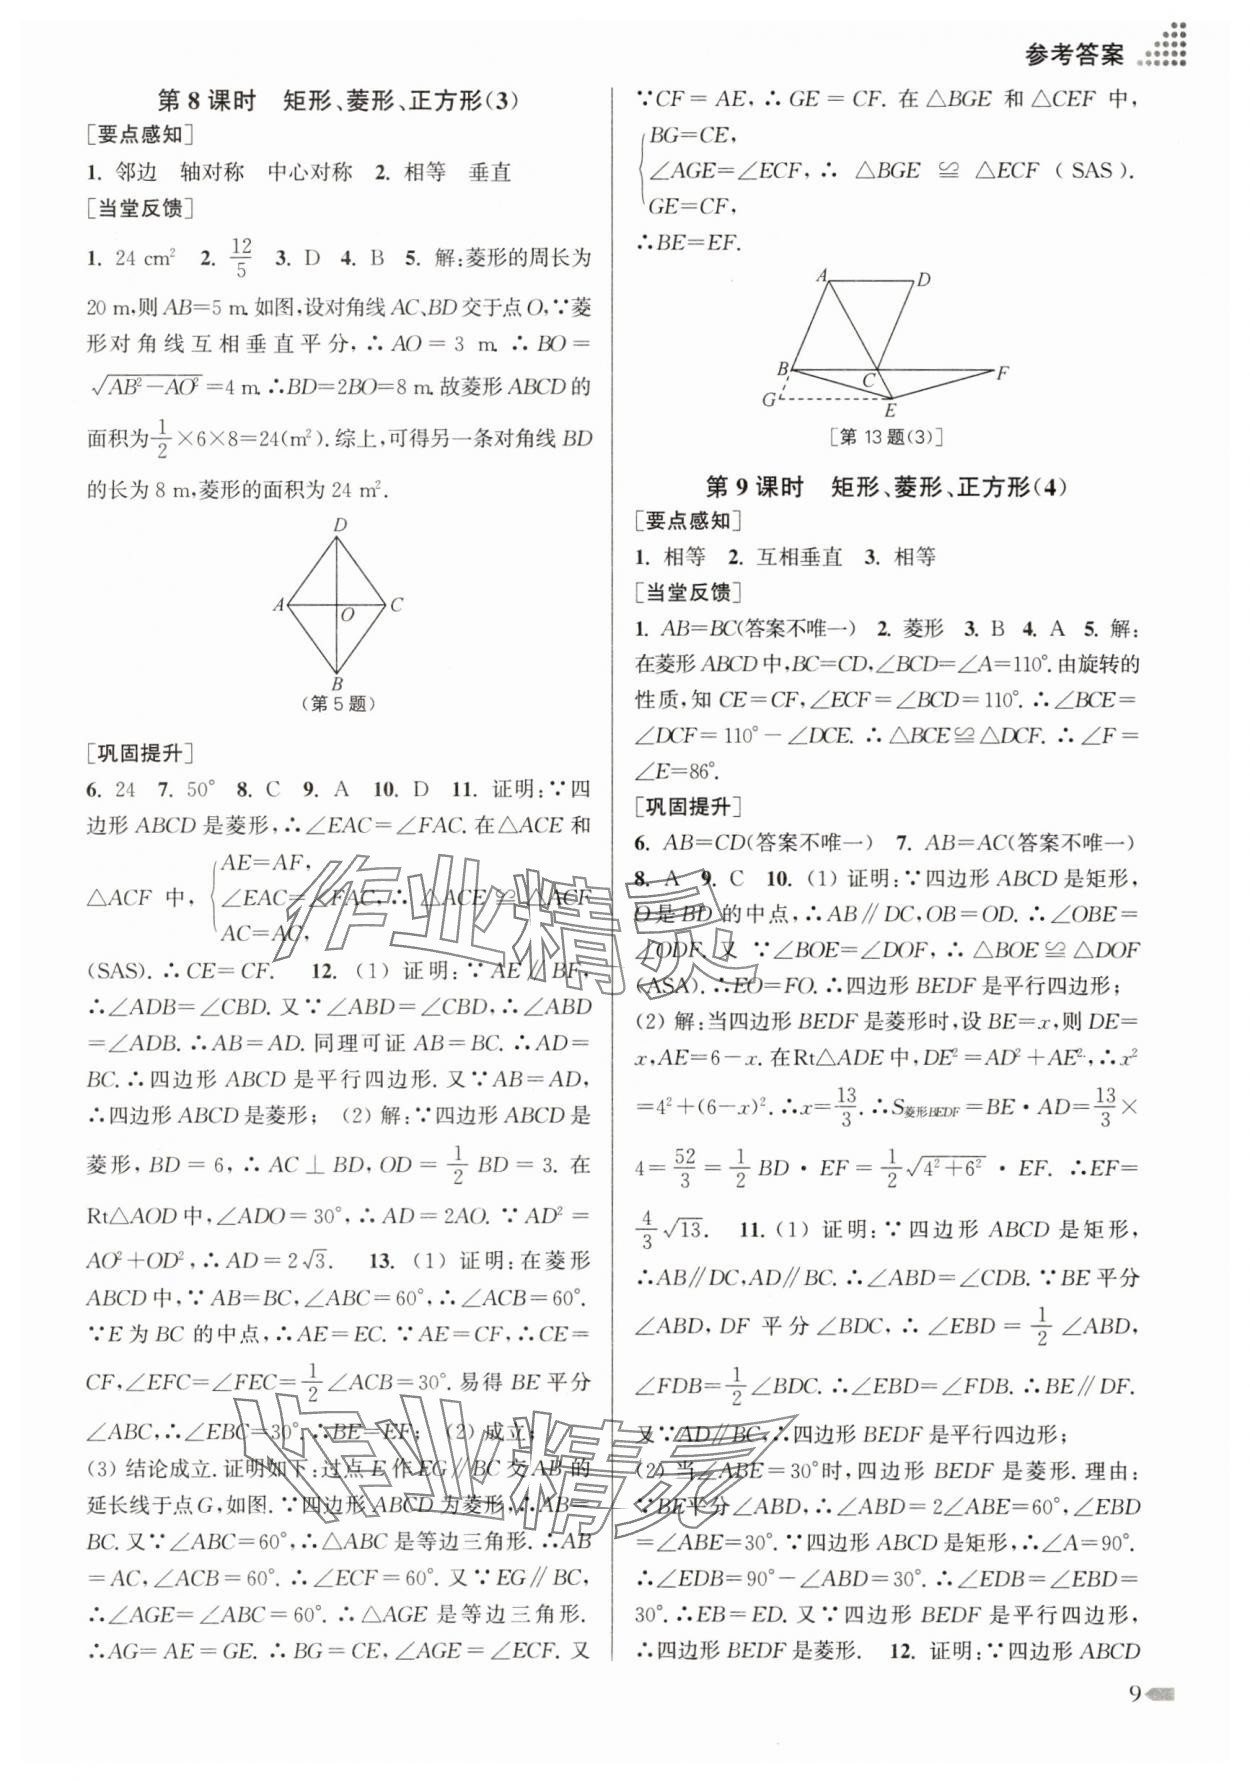 参考答案
第 8 课时　矩形、菱形、正方形(3)
[要点感知]
1. 邻边　轴对称　中心对称　2. 相等　垂直
[当堂反馈]
1. 24 cm²　2. 12/5　3. D　4. B　5. 解:菱形的周长为
20 m,则 AB=5 m. 如图,设对角线 AC、BD 交于点 O,∵菱
形对角线互相垂直平分,∴AO=3 m. ∴BO=
√(AB²−AO²)=4 m. ∴BD=2BO=8 m. 故菱形 ABCD 的
面积为1/2×6×8=24(m²). 综上,可得另一条对角线 BD
的长为 8 m,菱形的面积为 24 m².
D
A
O
C
B
(第 5 题)
[巩固提升]
6. 24　7. 50°　8. C　9. A　10. D　11. 证明:∵四
边形 ABCD 是菱形,∴∠EAC=∠FAC. 在△ACE 和
△ACF 中, { AE=AF,
∠EAC=∠FAC, ∴△ACE≌△ACF
AC=AC,
(SAS). ∴CE=CF.　12. (1) 证明:∵AE∥BF,
∴∠ADB=∠CBD. 又∵∠ABD=∠CBD,∴∠ABD
=∠ADB. ∴AB=AD. 同理可证 AB=BC. ∴AD=
BC. ∴四边形 ABCD 是平行四边形. 又∵AB=AD,
∴四边形 ABCD 是菱形; (2) 解:∵四边形 ABCD 是
菱形,BD=6,∴AC⊥BD,OD=1/2BD=3. 在
Rt△AOD 中,∠ADO=30°,∴AD=2AO. ∵AD²=
AO²+OD²,∴AD=2√3.　13. (1) 证明:在菱形
ABCD 中,∵AB=BC,∠ABC=60°,∴∠ACB=60°.
∵E 为 BC 的中点,∴AE=EC. ∵AE=CF,∴CE=
CF,∠EFC=∠FEC=1/2∠ACB=30°. 易得 BE 平分
∠ABC,∴∠EBC=30°. ∴BE=EF; (2) 成立;
(3) 结论成立. 证明如下:过点 E 作 EG∥BC 交 AB 的
延长线于点 G,如图. ∵四边形 ABCD 为菱形,∴AB=
BC. 又∵∠ABC=60°,∴△ABC 是等边三角形. ∴AB
=AC,∠ACB=60°. ∴∠ECF=60°. 又∵EG∥BC,
∴∠AGE=∠ABC=60°. ∴△AGE 是等边三角形.
∴AG=AE=GE. ∴BG=CE,∠AGE=∠ECF. 又
∵CF=AE,∴GE=CF. 在△BGE 和△CEF 中,
{ BG=CE,
∠AGE=∠ECF, ∴△BGE≌△ECF(SAS).
GE=CF,
∴BE=EF.
A
D
B
C
F
G
E
[第 13 题(3)]
第 9 课时　矩形、菱形、正方形(4)
[要点感知]
1. 相等　2. 互相垂直　3. 相等
[当堂反馈]
1. AB=BC(答案不唯一)　2. 菱形　3. B　4. A　5. 解:
在菱形 ABCD 中,BC=CD,∠BCD=∠A=110°. 由旋转的
性质,知 CE=CF,∠ECF=∠BCD=110°. ∴∠BCE=
∠DCF=110°−∠DCE. ∴△BCE≌△DCF. ∴∠F=
∠E=86°.
[巩固提升]
6. AB=CD(答案不唯一)　7. AB=AC(答案不唯一)
8. A　9. C　10. (1) 证明:∵四边形 ABCD 是矩形,
O 是 BD 的中点,∴AB∥DC,OB=OD. ∴∠OBE=
∠ODF. 又∵∠BOE=∠DOF,∴△BOE≌△DOF
(ASA). ∴EO=FO. ∴四边形 BEDF 是平行四边形;
(2) 解:当四边形 BEDF 是菱形时,设 BE=x,则 DE=
x,AE=6−x. 在Rt△ADE 中,DE²=AD²+AE²,∴x²
=4²+(6−x)². ∴x=13/3. ∴S菱形BEDF=BE·AD=13/3×
4=52/3=1/2BD·EF=1/2√(4²+6²)·EF. ∴EF=
4/3√13.　11. (1) 证明:∵四边形 ABCD 是矩形,
∴AB∥DC,AD∥BC. ∴∠ABD=∠CDB. ∵BE 平分
∠ABD,DF 平分∠BDC,∴∠EBD=1/2∠ABD,
∠FDB=1/2∠BDC. ∴∠EBD=∠FDB. ∴BE∥DF.
又∵AD∥BC,∴四边形 BEDF 是平行四边形;
(2) 当∠ABE=30°时,四边形 BEDF 是菱形. 理由:
∵BE平分∠ABD,∴∠ABD=2∠ABE=60°,∠EBD
=∠ABE=30°. ∵四边形 ABCD 是矩形,∴∠A=90°.
∴∠EDB=90°−∠ABD=30°. ∴∠EDB=∠EBD=
30°. ∴EB=ED. 又∵四边形 BEDF 是平行四边形,
∴四边形 BEDF 是菱形.　12. 证明:∵四边形 ABCD
9
作业精灵
作业精灵